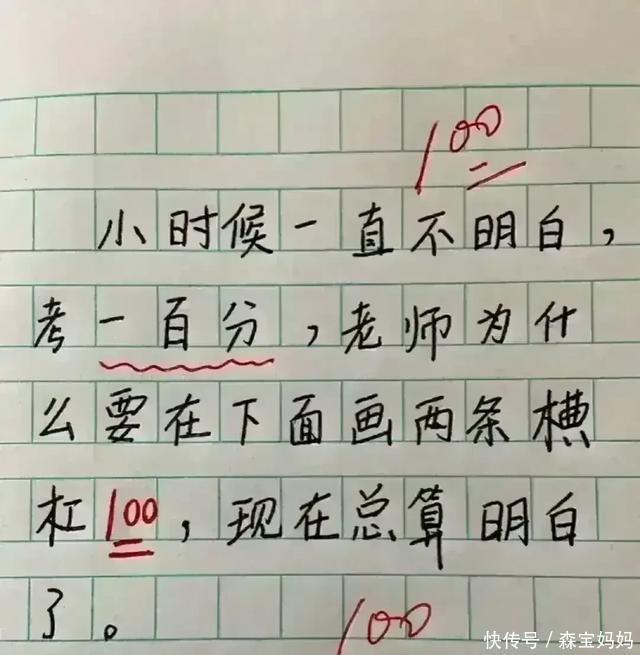 100
小时候一直不明白，
考一百分，老师为什
么要在下面画两条横
杠100，现在总算明白
了。
100
快传号／森宝妈妈